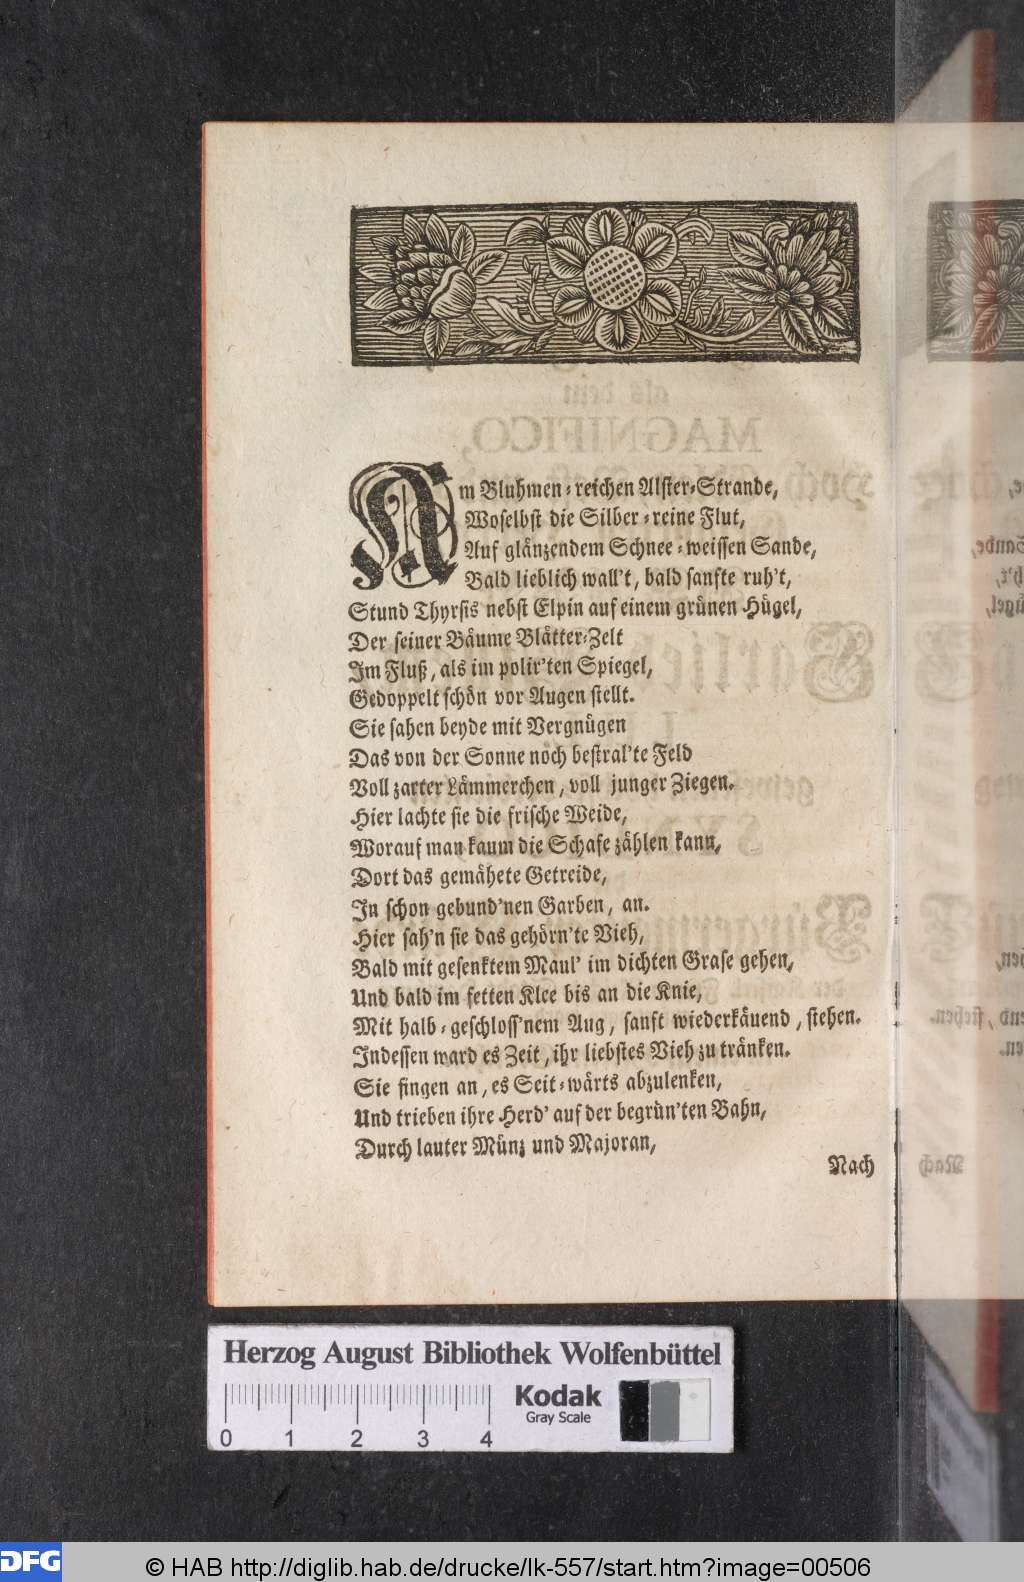 Am Bluhmen-reichen Alster-Strande,
Woselbst die Silber-reine Flut,
Auf glänzendem Schnee-weissen Sande,
Bald lieblich wall't, bald sanfte ruh't,
Stund Thyrsis nebst Elpin auf einem grünen Hügel,
Der seiner Bäume Blätter-Zelt
Im Fluß, als im polir'ten Spiegel,
Gedoppelt schön vor Augen stellt.
Sie sahen beyde mit Vergnügen
Das von der Sonne noch bestral'te Feld
Voll zarter Lämmerchen, voll junger Ziegen.
Hier lachte sie die frische Weide,
Worauf man kaum die Schafe zählen kann,
Dort das gemähete Getreide,
In schon gebund'nen Garben, an.
Hier sah'n sie das gehörn'te Vieh,
Bald mit gesenktem Maul' im dichten Grase gehen,
Und bald im fetten Klee bis an die Knie,
Mit halb-geschloss'nem Aug, sanft wiederkäuend, stehen.
Indessen ward es Zeit, ihr liebstes Vieh zu tränken.
Sie fingen an, es Seit-wärts abzulenken,
Und trieben ihre Herd' auf der begrün'ten Bahn,
Durch lauter Münz und Majoran,
Nach
Herzog August Bibliothek Wolfenbüttel
Kodak
Gray Scale
0 1 2 3 4
DFG
© HAB http://diglib.hab.de/drucke/lk-557/start.htm?image=00506